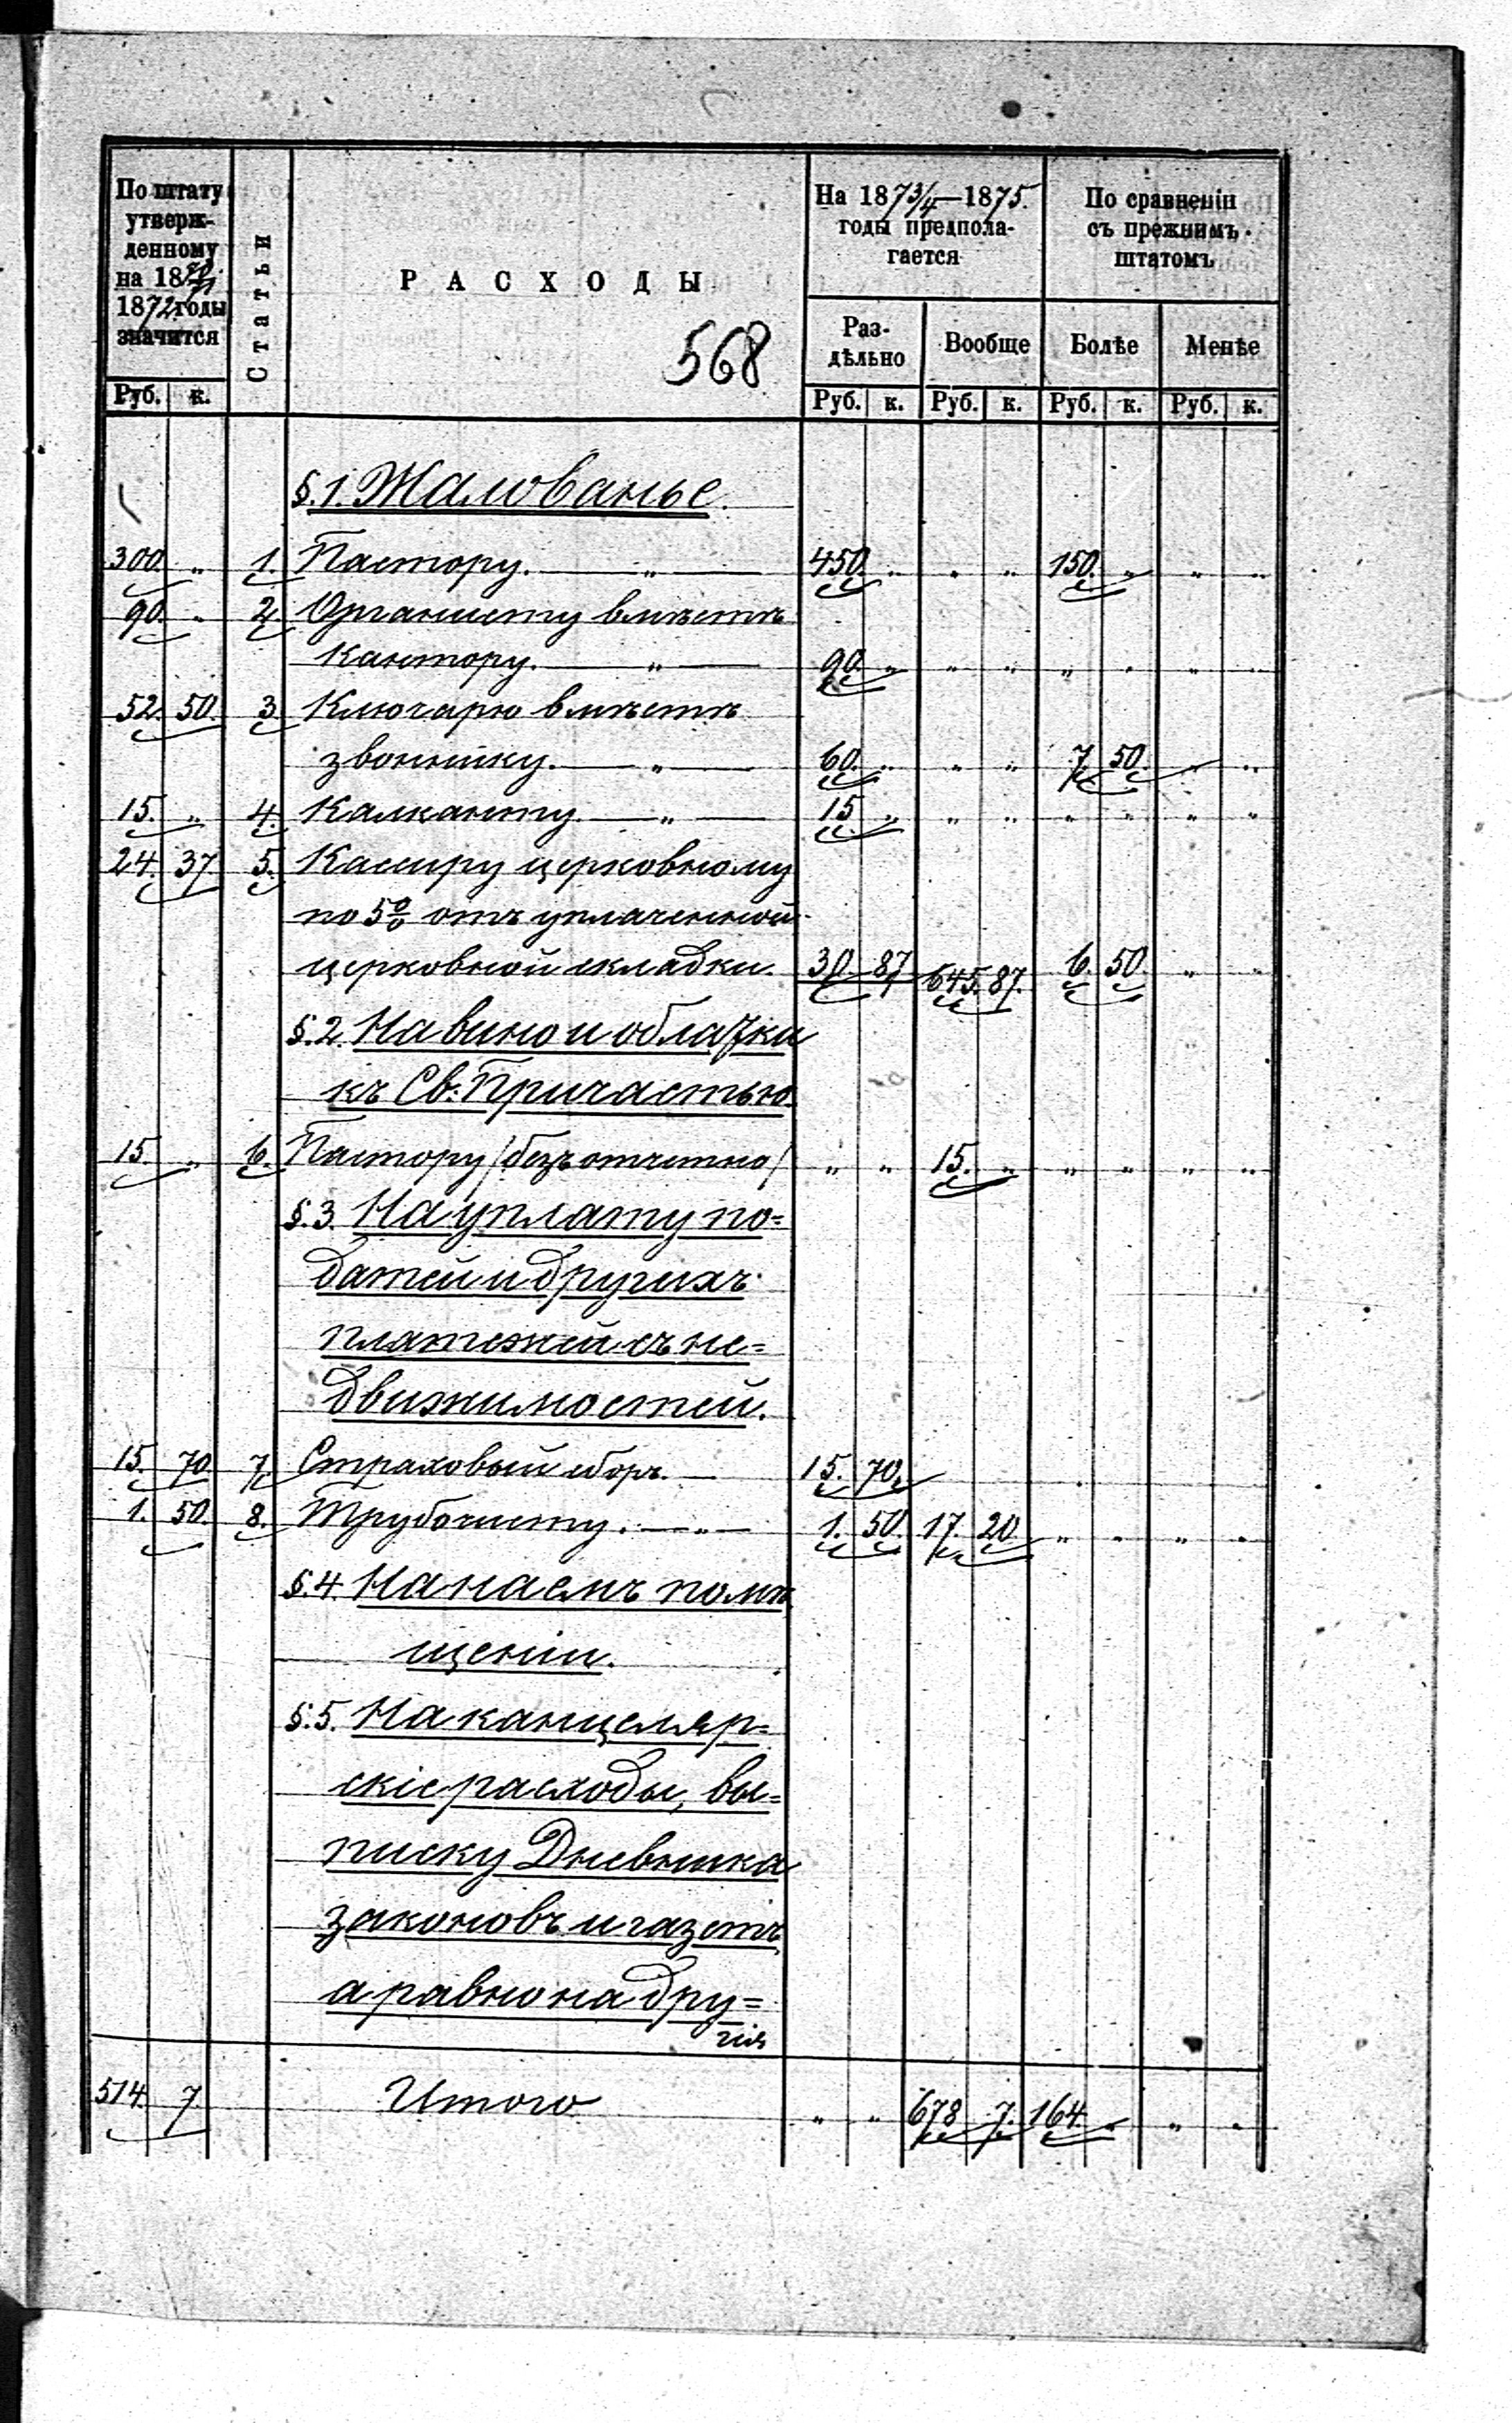 По штату утверж-
денному
на 1870/71
1872 годы
значится
Руб. к.
Статьи
РАСХОДЫ
568
На 1873/4—1875.
годы предпола-
гается
Раз-
дѣльно
Вообще
Руб. к. Руб. к.
По сравненіи
съ прежнимъ
штатомъ
Болѣе Менѣе
Руб. к. Руб. к.
§.1. Жалованье.
300. „ 1. Пастору. — „ — 450. „ „ „ 150. „ „ „
90. „ 2. Органисту вмѣстѣ
кантору. — „ — 90. „ „ „ „ „ „ „
52. 50. 3. Ключарю вмѣстѣ
звонику. — „ — 60. „ „ „ 7. 50. „ „
15. „ 4. Калканту. — „ — 15 „ „ „ „ „ „ „
24. 37 5. Кассиру церковному
по 5% отъ уплаченной
церковной складки. 30. 87 645. 87. 6. 50. „ „
§.2. На вино и облатки
къ Св: Причастью.
15. „ 6. Пастору /безъотчетно/ „ „ 15. „ „ „ „ „
§.3. На уплату по=
датей и другихъ
платежей съ не=
движимостей.
15. 70 7. Страховый сборъ. — 15. 70.
1. 50. 8. Трубочисту. — „ — 1. 50. 17. 20 „ „ „ „
§.4. На наемъ помѣ
щеніи.
§.5. На канцеляр=
скіе расходы, вы=
писку Дневника
законовъ и газетъ,
а равно на дру=
гія
514. 7. Итого „ „ 678 7. 164. „ „ „